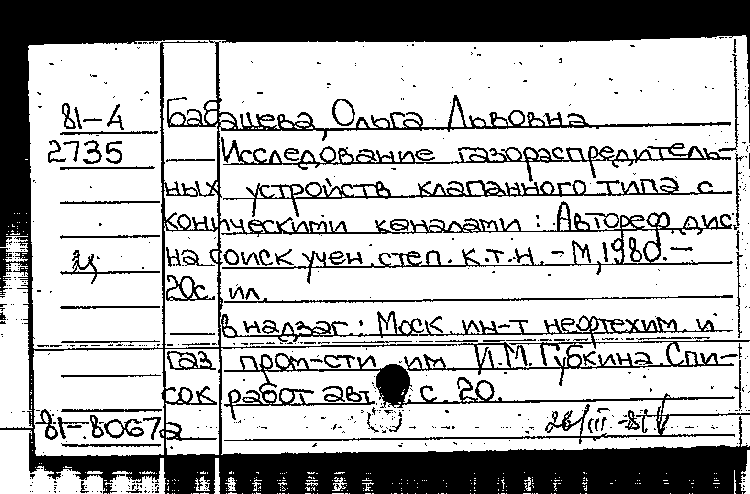 81-4 Бабашева, Ольга Львовна.
2735 Исследование газораспредитель-
ных устройств клапанного типа с
коническими каналами: Автореф. дис.
на соиск. учен. степ. к.т.н. - М, 1980. -
20с. ил.
В надзаг.: Моск. ин-т нефтехим. и
газ. пром-сти им. И.М. Губкина. Спи-
сок работ авт. с. 20.
81-8067а 26/III-81